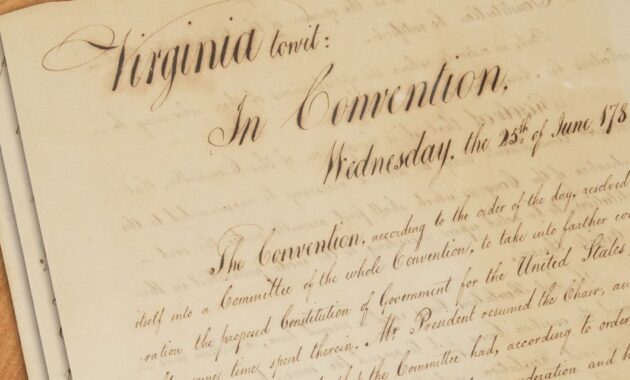 Virginia towit:
In Convention,
Wednesday, the 25th of June 178
The Convention, according to the order of the day, resolved
itself into a Committee of the whole Convention, to take into farther con
ration the proposed Constitution of Government for the United States
time spent therein. Mr President resumed the Chair, an
that the Committee had, according to order
and h